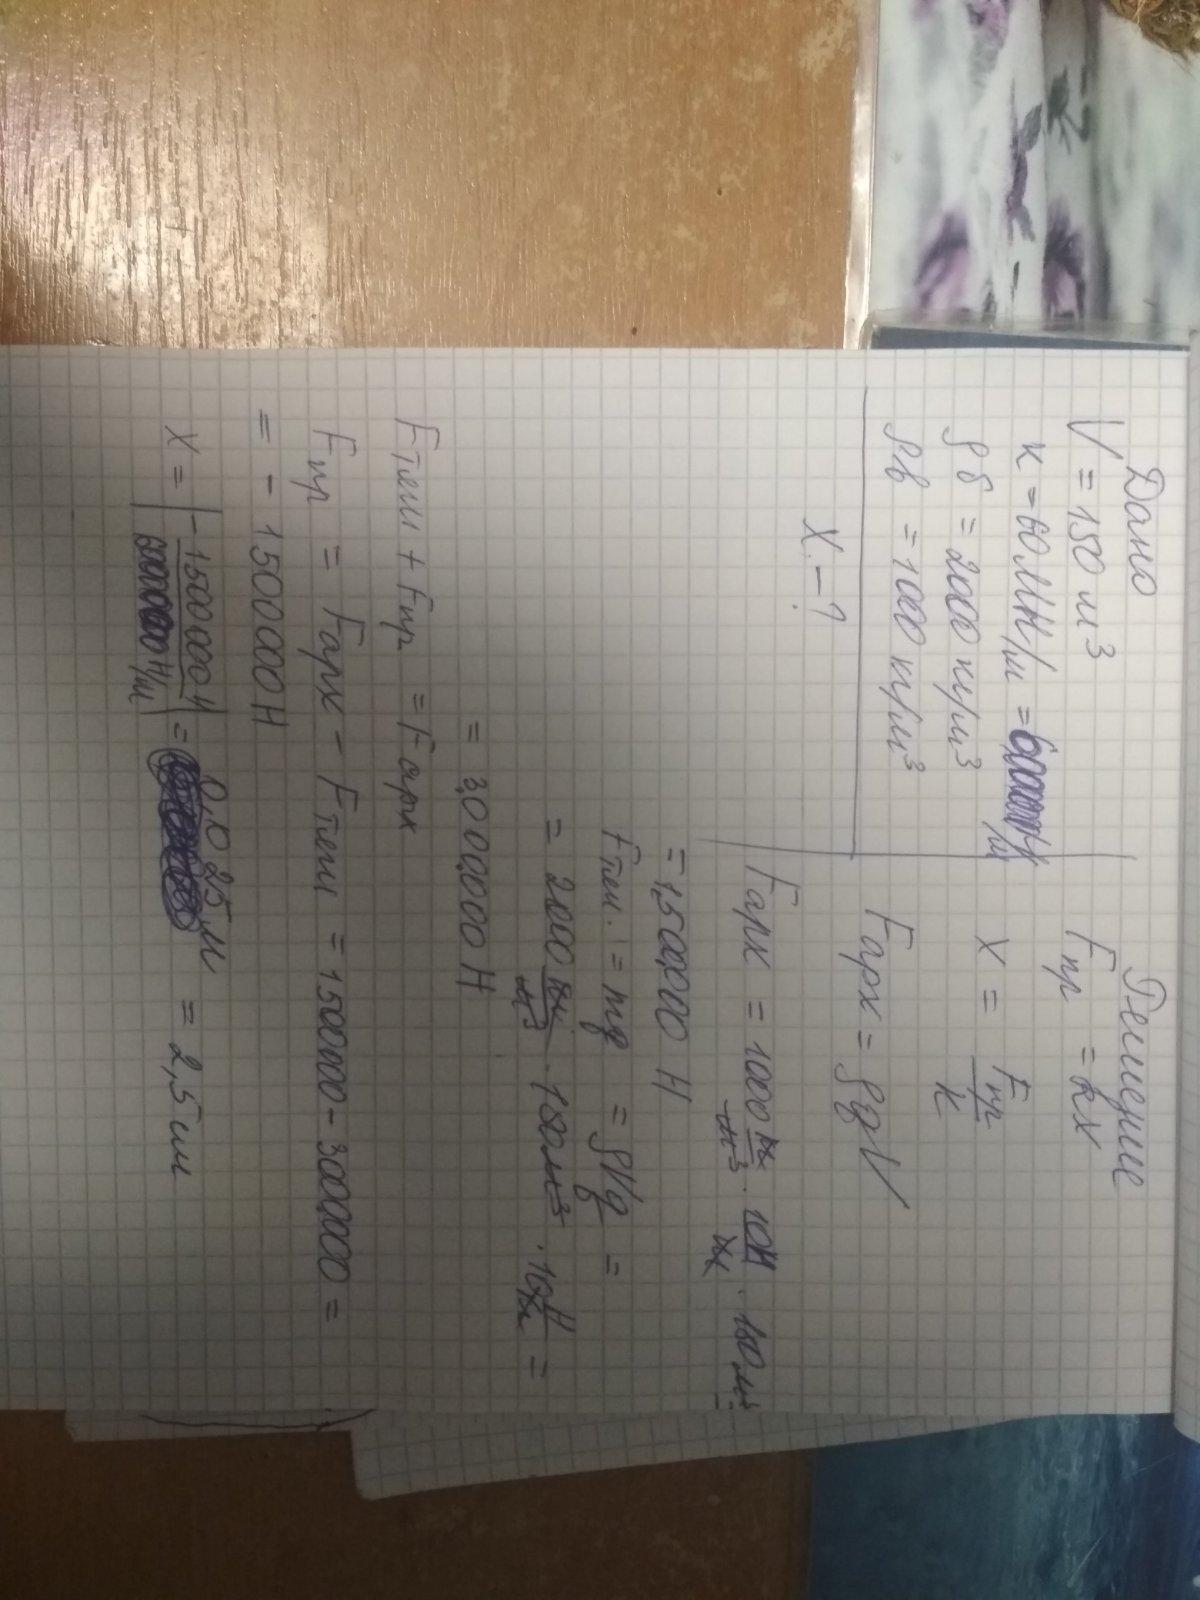 Дано
V = 150 м³
к = 60 МН/м = 60000000 Н/м
ρб = 2000 кг/м³
ρв = 1000 кг/м³
X - ?
Решение
Fпр = kx
x = Fпр/k
Fарх = ρgV
Fарх = 1000 кг/м³ · 10Н/кг · 150 м³
= 1500000 Н
Fтяж. = mg = ρVg =
= 2000 кг/м³ · 150 м³ · 10 Н/кг =
= 3000000 Н
Fтяж + Fпр = Fарх
Fпр = Fарх - Fтяж = 1500000 - 3000000 =
= - 1500000 Н
X = |-1500000 Н / 60000000 Н/м| = 0,025 м = 2,5 см